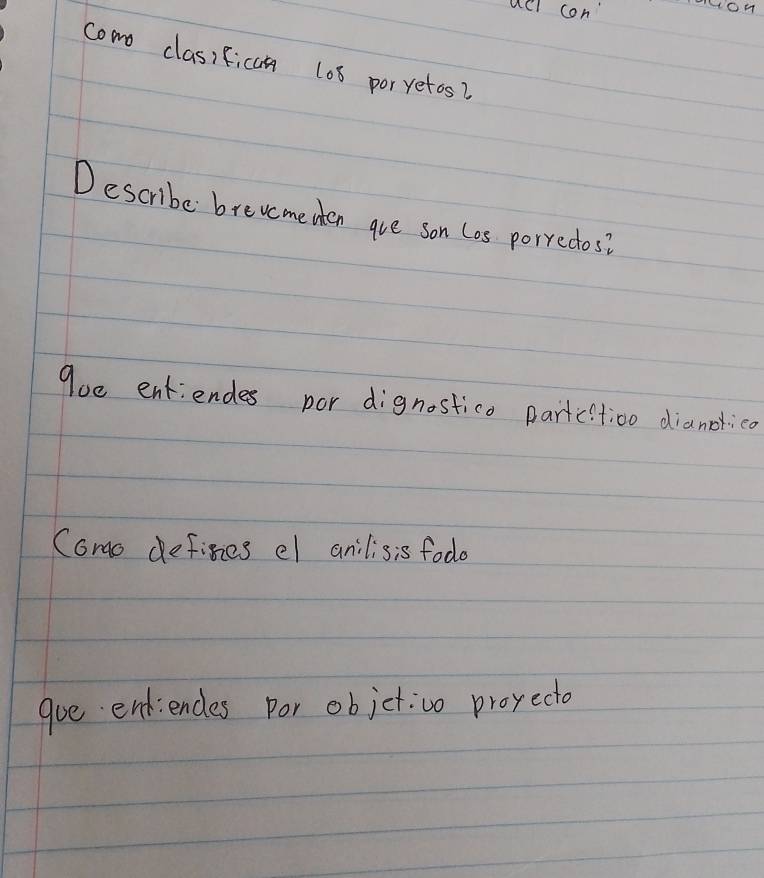 con
Como clasifican los poryetos?
Describe brevemeten que son los porrectos?
que entiendes por dignostico partcitivo dianotico
Como defines el anilisis fodo
que entiendes por objetivo proyecto